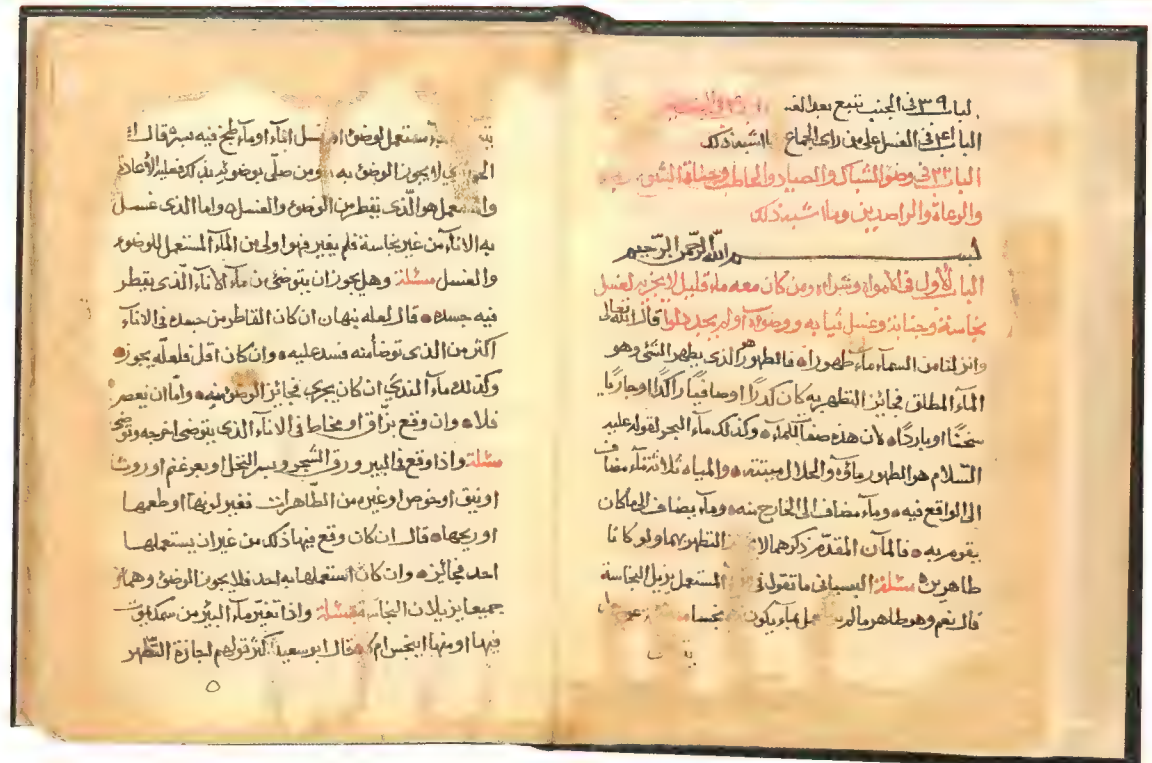 الباب ٣٩ في الجنب تتبع بعد الغسل
الباب في الغسل على من رأى الجماع وما اشبه ذلك
الباب في وضوء الشباك والصياد والحاطب وجناة الشوع
والرعاة والراصدين وما اشبه ذلك
بسم الله الرحمن الرحيم
الباب الأول في الأمواه وشراه ومن كان معه ماء قليل لا يجزيه لغسل
نجاسة وجنابة وغسل ثيابه ووضوئه أو لم يجد دلوا قال الله تعالى
وانزلنا من السماء ماء طهورا فالطهور هو الذي يطهر الشيء وهو
الماء المطلق فجائز التطهر به كان كدرا او صافيا راكدا او جاريا
سخنا او باردا لان هذه صفات للماء وكذلك ماء البحر لقوله عليه
السلام هو الطهور ماؤه والحلال ميتته والمياه ثلاثة ماء مضاف
الى الواقع فيه وماء مضاف الى الخارج منه وماء يضاف الى ما كان
يقوم به فالمآن المقدم ذكرهما لا التطهر بهما ولو كانا
طاهرين مسئلة البسياني ما تقول في المستعمل يزيل النجاسة
قال نعم وهو طاهر ما لم بماء يكون نجسا
ماء مستعمل لوضوء او غسل اناء او ماء طبخ فيه بسر قال ان
لا يجوز الوضوء به ومن صلى بوضوء بذلك فعليه الأعادة
والمستعمل هو الذي يقطر من الوضوء والغسل واما الذي غسل
به الاناء من غير نجاسة فلم يغير فهو اولى من الماء المستعمل للوضوء
والغسل مسئلة وهل يجوز ان يتوضى من ماء الاناء الذي يقطر
فيه جسده قال لعله نبهان ان كان القاطر من جسده في الاناء
اكثر من الذي توضأ منه فسد عليه وان كان اقل فلعله يجوز
وكذلك ماء الندى ان كان يجري فجائز الوضوء منه واما ان يعصر
فلا وان وقع بزاق او مخاط في الاناء الذي يتوضى اخرجه وتوضى
مسئلة واذا وقع في البير ورق الشجر وبسر النخل او بعر غنم او روث
او نبق او خوص او غيره من الطاهرات فغير لونها او طعمها
او ريحها قال ان كان وقع فيها ذلك من غير ان يستعملها
احد فجائز وان كان استعملها به احد فلا يجوز الوضوء وهما
جميعا يزيلان النجاسة مسئلة واذا تغير ماء البئر من سمك
فيها او منها اينجس ام لا قال ابو سعيد اكثر قولهم اجازة التطهر